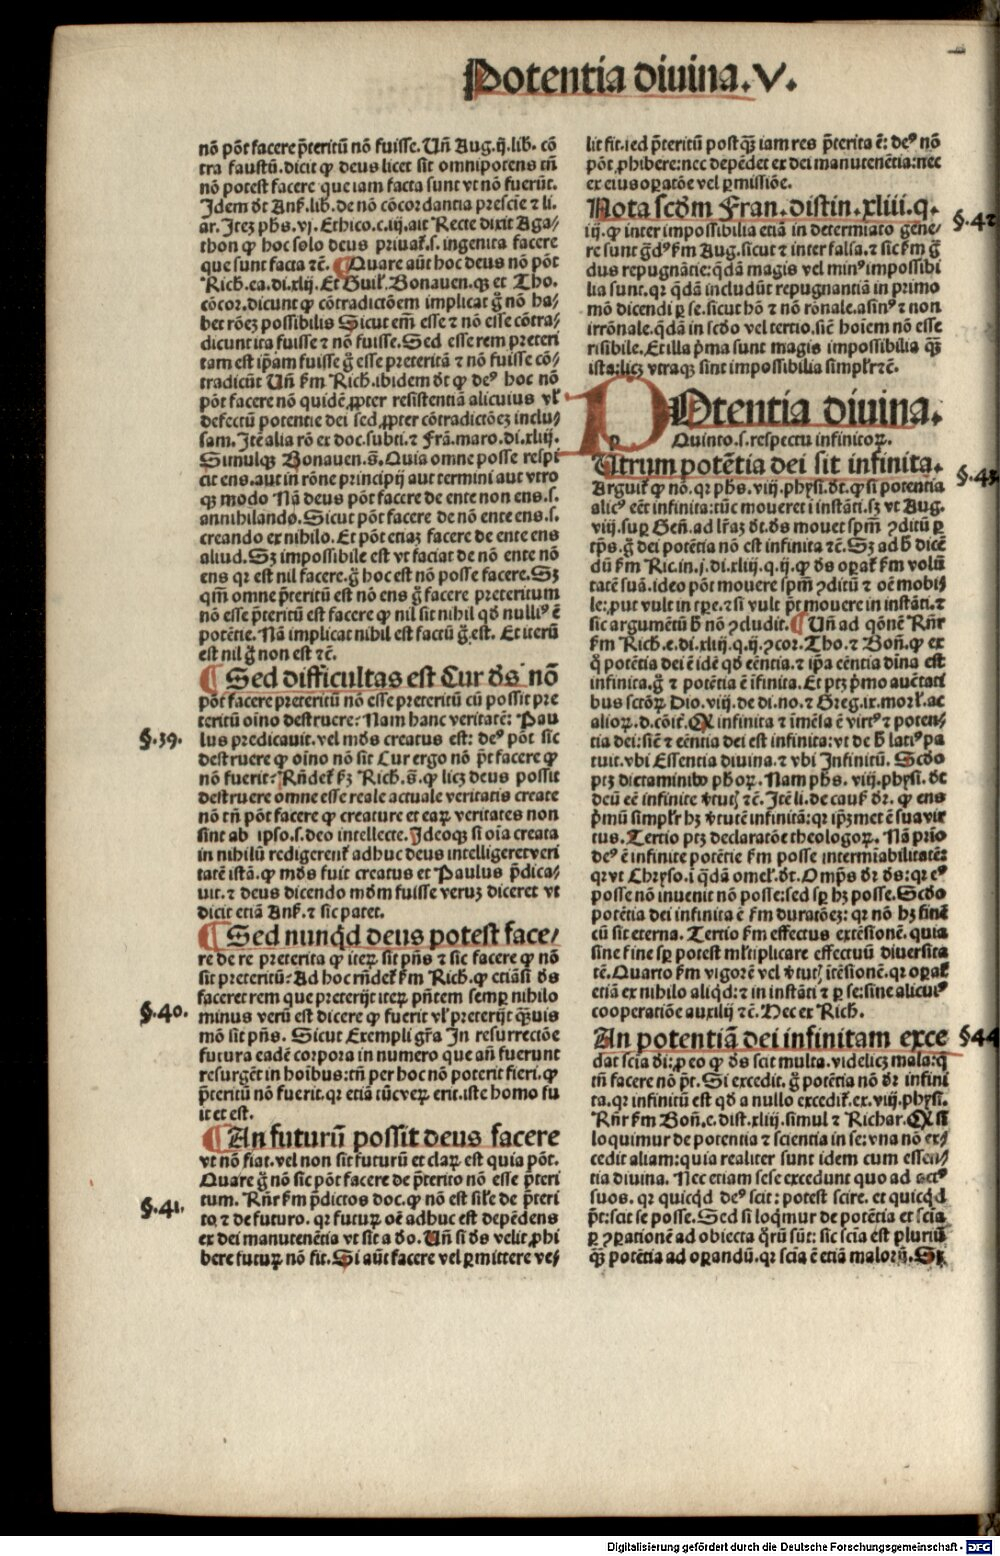 Potentia diuina.V.
nō pōt facere p̄teritū nō fuisse. Uñ Aug.ij.lib. cō
tra faustū.dicit ꝙ deus licet sit omnipotens tñ
nō potest facere que iam facta sunt vt nō fuerūt.
Idem d̄t Anẜ.lib.de nō cōcordantia prescie ⁊ li.
ar. Itez ph̄s.vj. Ethico.c.iij.ait Recte dixit Aga-
thon ꝙ hoc solo deus priuaẜ.s. ingenita facere
que sunt facta ⁊c̄. ¶Quare aūt hoc deus nō pōt
Rich.ea.di.xlij. Et Guiẜ.Bonauen.qꝫ et Tho.
cōcor.dicunt ꝙ cōtradictōem implicat g̊ nō ha/
bet rōeꝫ possibilis Sicut em̄ esse ⁊ nō esse cōtra/
dicunt ita fuisse ⁊ nō fuisse. Sed esse rem preteri
tam est ip̄am fuisse g̊ esse preteritā ⁊ nō fuisse cō/
tradicūt Uñ ẜm Rich.ibidem d̄t ꝙ deꝰ hoc nō
pōt facere nō quidē ꝓpter resistentiā alicuius vl̓
defectū potentie dei sed ꝓpter cōtradictōeꝫ inclu/
sam. Itē alia rō ex doc.subti.⁊ Frā.maro.di.xliij.
Simulqꝫ Bonauen.s̄. Quia omne posse respi
cit ens.aut in rōne principij aut termini aut vtro
qꝫ modo Nā deus pōt facere de ente non ens.s.
annihilando. Sicut pōt facere de nō ente ens.s.
creando ex nihilo. Et pōt etiaꝫ facere de ente ens
aliud. Sꝫ impossibile est vt faciat de nō ente nō
ens qr est nil facere.g̊ hoc est nō posse facere. Sꝫ
qm̄ omne p̄teritū est nō ens g̊ facere preteritum
nō esse p̄teritū est facere ꝙ nil sit nihil qd̄ nulliꝰ ē
potētie. Nā implicat nihil est factū g̊.est. Et iterū
est nil g̊ non est ⁊c̄.
¶ Sed difficultas est Cur d̄s nō
pōt facere preteritū nō esse preteritū cū possit pre
teritū oīno destruere: Nam hanc veritatē: Pau
§.39. lus predicauit.vel mōs creatus est: deꝰ pōt sic
destruere ꝙ oīno nō sit Cur ergo nō p̄t facere ꝙ
nō fuerit: Rñdeẜ ẜꝫ Rich.s̄.ꝙ licꝫ deus possit
destruere omne esse reale actuale veritatis create
nō tñ pōt facere ꝙ creature et eaꝝ veritates non
sint ab ipso.s.deo intellecte. Ideoqꝫ si oīa creata
in nihilū redigerenẜ adhuc deus intelligeret veri
tatē istā.ꝙ mōs fuit creatus et Paulus p̄dica/
uit.⁊ deus dicendo mōm fuisse veruꝫ diceret vt
dicit etiā Anẜ.⁊ sic patet.
¶ Sed nunq̄d deus potest face/
re de re preterita ꝙ iteꝝ sit pn̄s ⁊ sic facere ꝙ nō
sit preteritū: Ad hoc rñdeẜ ẜm Rich.ꝙ etiāsi d̄s
faceret rem que preterijt iteꝝ pn̄tem sempꝫ nihilo
§.40. minus verū est dicere ꝙ fuerit vl̓ preterijt q̄ꝫuis
mō sit pn̄s. Sicut Exempli gr̄a In resurrectiōe
futura eadē corpora in numero que añ fuerunt
resurgēt in hoībus:tñ per hoc nō poterit fieri.ꝙ
p̄teritū nō fuerit.qr etiā tūc veꝝ erit.iste homo fu
it et est.
¶ An futurū possit deus facere
vt nō fiat.vel non sit futurū et claꝝ est quia pōt.
Quare g̊ nō sic pōt facere de p̄terito nō esse p̄teri
§.41. tum. Rñr ẜm p̄dictos doc.ꝙ nō est sil̓e de p̄teri
to.⁊ de futuro. qr futuꝝ oē adhuc est depēdens
ex dei manutenētia vt sit a do. Uñ si d̄s velit ꝓhi
bere futuꝝ nō fit. Si aūt facere vel ꝑmittere ve/
lit fit.sed p̄teritū postq̄ꝫ iam res p̄terita ē: deꝰ nō
pōt ꝓhibere:nec depēdet ex dei manutenētia:nec
ex eius oꝑatōe vel ꝑmissiōe.
Nota scd̄m Fran.distin.xliii.q. §.42
iij.ꝙ inter impossibilia etiā in determiato gene/
re sunt g̊dꝰ ẜm Aug.sicut ⁊ inter falsa.⁊ sic ẜm g̊
dus repugnātie:q̄dā magis vel minꝰ impossibi
lia sunt.qr q̄dā includūt repugnantiā in primo
mō dicendi ꝑ se.sicut hō ⁊ nō rōnale.asinꝰ ⁊ non
irrōnale.q̄dā in scd̄o vel tertio.sic̄ hoīem nō esse
risibile. Et illa p̄ma sunt magis impossibilia q̄ꝫ
ista:licꝫ vtraqꝫ sint impossibilia simpl̓r ⁊c̄.
POtentia diuina.
Quinto.s.respectu infinitoꝝ.
Utrum potētia dei sit infinita. §.43
Arguiẜ ꝙ nō. qr ph̄s.viij.physi.d̄t.ꝙ si potentia
alicꝰ eēt infinita:tūc moueret i instāti.sꝫ vt Aug.
viij.suꝑ Geñ.ad lr̄aꝫ d̄t.d̄s mouet spm̄ ꝯditū ꝑ
tp̄s.g̊ dei potētia nō est infinita ⁊c̄. Sꝫ ad h̄ dicē
dū ẜm Ric.in.j.di.xliij.q.ij.ꝙ d̄s oꝑaẜ ẜm volū
tatē suā.ideo pōt mouere spm̄ ꝯditū ⁊ oē mobi/
le:ꝓut vult in tꝑe.⁊ si vult p̄t mouere in instāti.⁊
sic argumētū h̄ nō ꝯcludit. ¶Uñ ad q̄onē Rñr
ẜm Rich.e.di.xliij.q.ij.ꝯcor.Tho.⁊ Boñ.ꝙ ex
q̊ potētia dei ē idē qd̄ eēntia.⁊ ip̄a eēntia dīna est
infinita.g̊ ⁊ potētia ē īfinita. Et ptꝫ p̄mo auētati
bus sctōꝝ Dio.viij.de di.no.⁊ Greg.ix.morẜ.ac
alioꝝ.d.cōit̄. Qꝫ infinita ⁊ īmēsa ē virtꝰ ⁊ poten/
tia dei:sic̄ ⁊ eēntia dei est infinita:vt de h̄ latiꝰ pa
tuit.vbi Essentia diuina.⁊ vbi Infinitū. Scd̄o
ptꝫ dictaminibꝰ ph̄oꝝ. Nam ph̄s. viij.physi. d̄t
deū eē infinite v̓tutꝭ ⁊c̄. Itē li.de cauẜ d̄r. ꝙ ens
p̄mū simpl̓r hꝫ v̓tutē infinitā:qr ipꝫmet ē sua vir
tus. Tertio ptꝫ declaratōe theologoꝝ. Nā prīo
deꝰ ē infinite potētie ẜm posse intermīabilitatē:
qr vt Chryso.i q̄dā omeẜ.d̄t. Omp̄s d̄r d̄s:qr eꝰ
posse nō inuenit nō posse:sed sp̄ hꝫ posse. Scd̄o
potētia dei infinita ē ẜm duratōeꝫ: qr nō hꝫ finē
cū sit eterna. Tertio ẜm effectus extēsionē.quia
sine fine sp̄ potest ml̓tiplicare effectuū diuersita
tē. Quarto ẜm vigorē vel v̓tutꝭ itēsionē.qr oꝑaẜ
etiā ex nihilo aliqd̄:⁊ in instāti ⁊ ꝑ se:sine alicuiꝰ
cooperatiōe auxilij ⁊c̄. Hec ex Rich.
An potentiā dei infinitam exce §44
dat scīa di:ꝓ eo ꝙ d̄s scit multa.videlicꝫ mala:q̄
tñ facere nō p̄t. Si excedit. g̊ potētia nō d̄r infini
ta.qr infinitū est qd̄ a nullo excediẜ.ex.viij.physi.
Rñr ẜm Boñ.e.dist.xliij.simul ⁊ Richar. Qꝫ si
loquimur de potentia ⁊ scientia in se:vna nō ex/
cedit aliam:quia realiter sunt idem cum essen/
tia diuina. Nec etiam sese excedunt quo ad actꝰ
suos. qr quicqd̄ deꝰ scit: potest scire. et quicqd̄
p̄t:scit se posse. Sed si loq̄mur de potētia et scīa
ꝑ ꝯparationē ad obiecta q̄rū sūt: sic scīa est plurīū
q̄ꝫ potētia ad oꝑandū.qr scīa ē etiā maloꝝ. Sꝫ
Digitalisierung gefördert durch die Deutsche Forschungsgemeinschaft - DFG